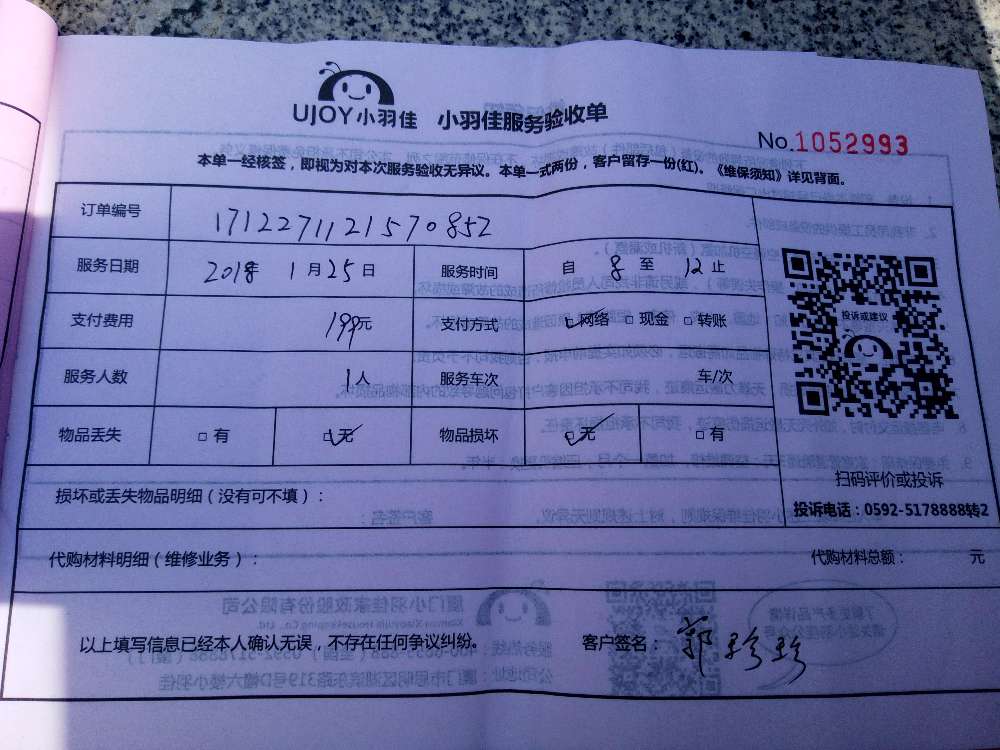 UJOY小羽佳 小羽佳服务验收单
No.1052993
本单一经核签，即视为对本次服务验收无异议。本单一式两份，客户留存一份(红)。《维保须知》详见背面。
订单编号 1712271121570852
服务日期 2018年 1月25日 服务时间 自 8 至 12止
支付费用 199元 支付方式 ☑网络 □现金 □转账
投诉或建议
服务人数 1人 服务车次 车/次
物品丢失 □有 ☑无 物品损坏 ☑无 □有
扫码评价或投诉
损坏或丢失物品明细（没有可不填）：
投诉电话：0592-5178888转2
代购材料明细（维修业务）： 代购材料总额： 元
以上填写信息已经本人确认无误，不存在任何争议纠纷。 客户签名：郭珍珍